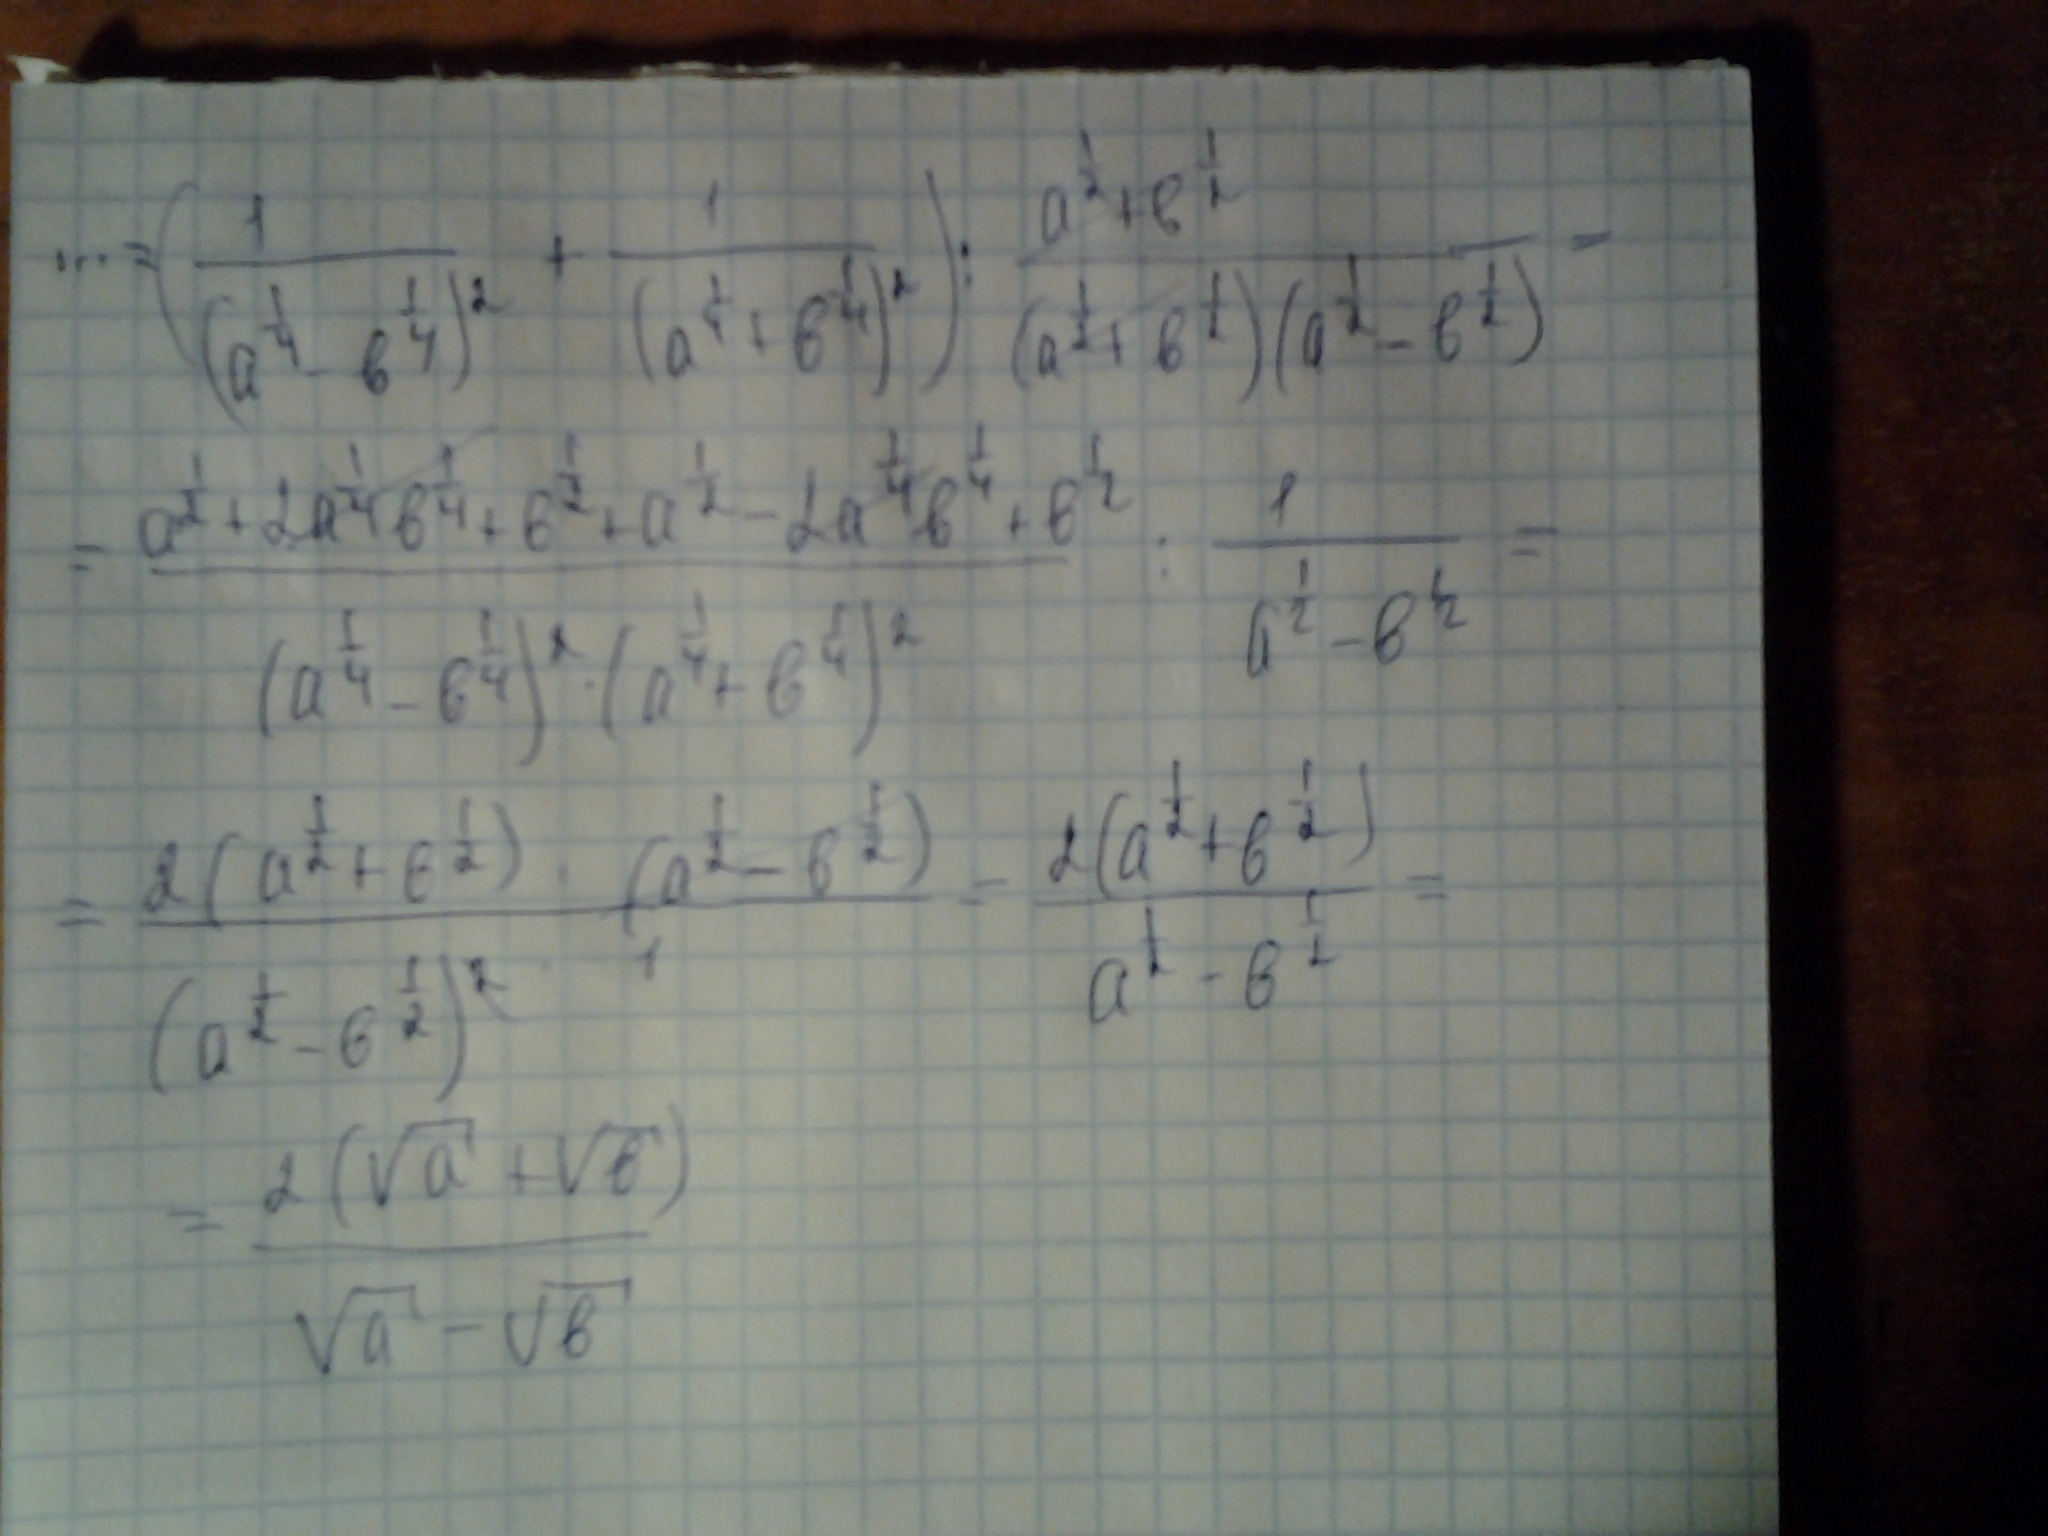 ... = (1/(a^(1/4) - в^(1/4))^2 + 1/(a^(1/4) + в^(1/4))^2) : (a^(1/2) + в^(1/2))/((a^(1/2) + в^(1/2))(a^(1/2) - в^(1/2))) =
= (a^(1/2) + 2a^(1/4)в^(1/4) + в^(1/2) + a^(1/2) - 2a^(1/4)в^(1/4) + в^(1/2))/((a^(1/4) - в^(1/4))^2 · (a^(1/4) + в^(1/4))^2) : 1/(a^(1/2) - в^(1/2)) =
= 2(a^(1/2) + в^(1/2))/(a^(1/2) - в^(1/2))^2 · (a^(1/2) - в^(1/2))/1 = 2(a^(1/2) + в^(1/2))/(a^(1/2) - в^(1/2)) =
= 2(√a + √в)/(√a - √в)